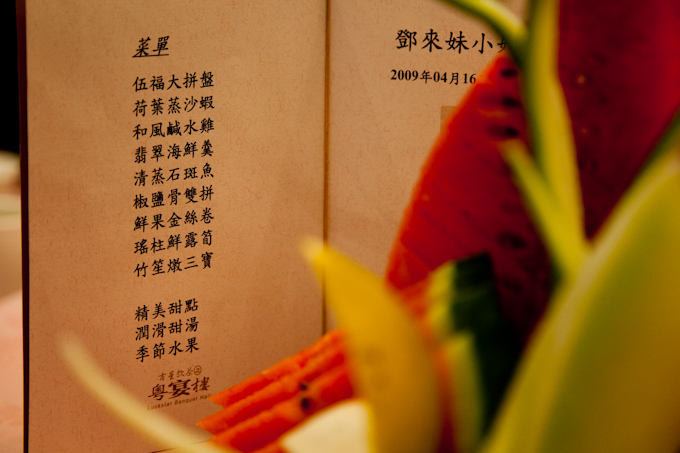 菜單
伍福大拼盤
荷葉蒸沙蝦
和風鹹水雞
翡翠海鮮羹
清蒸石斑魚
椒鹽骨雙拼
鮮果金絲卷
瑤柱鮮露筍
竹笙燉三寶
精美甜點
潤滑甜湯
季節水果
粵宴樓
Luckstar Banquet Hall
鄧來妹小
2009年04月16